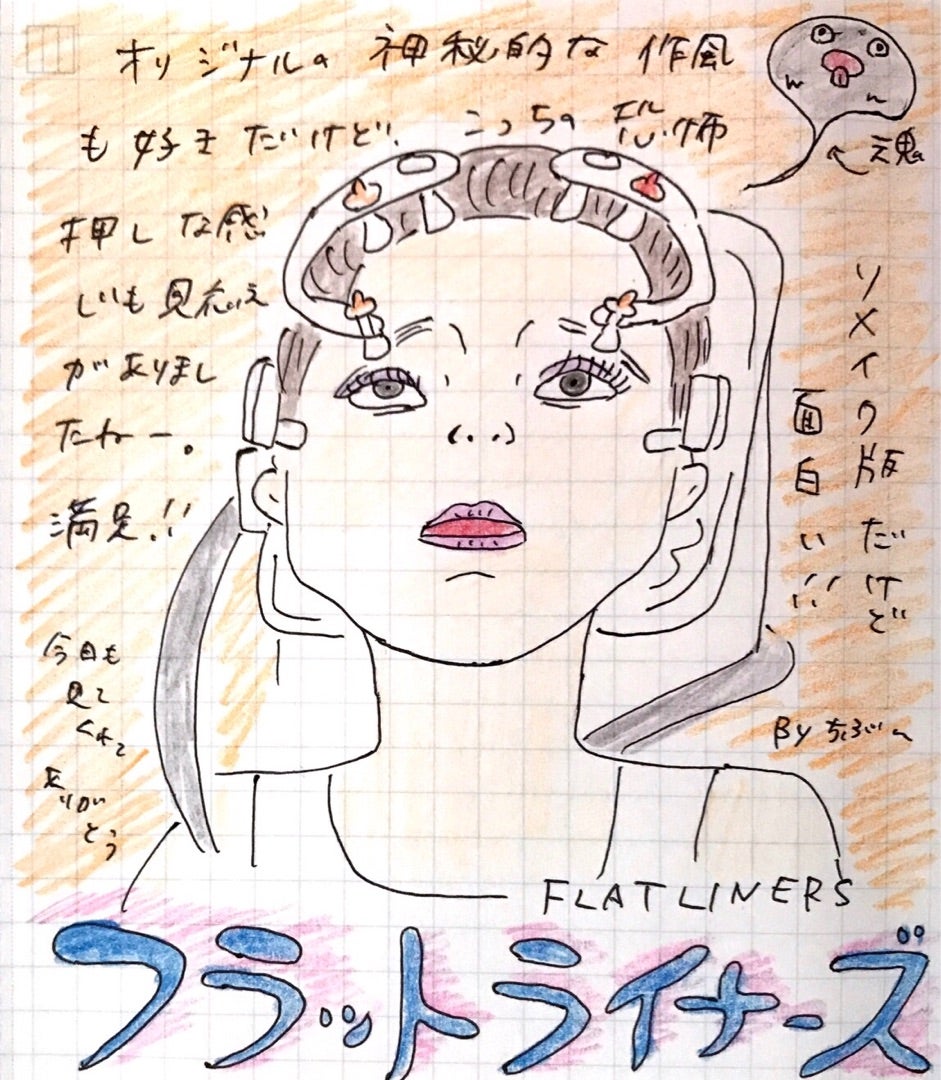 オリジナルの神秘的な作風
も好きだけど、こっちの恐怖
押しな感
じも見応え
がありまし
たねー。
満足!!
←魂
リメイク版だけど
面白い!!
今日も
見て
くれて
ありがとう
By ちぶー
FLATLINERS
フラットライナーズ